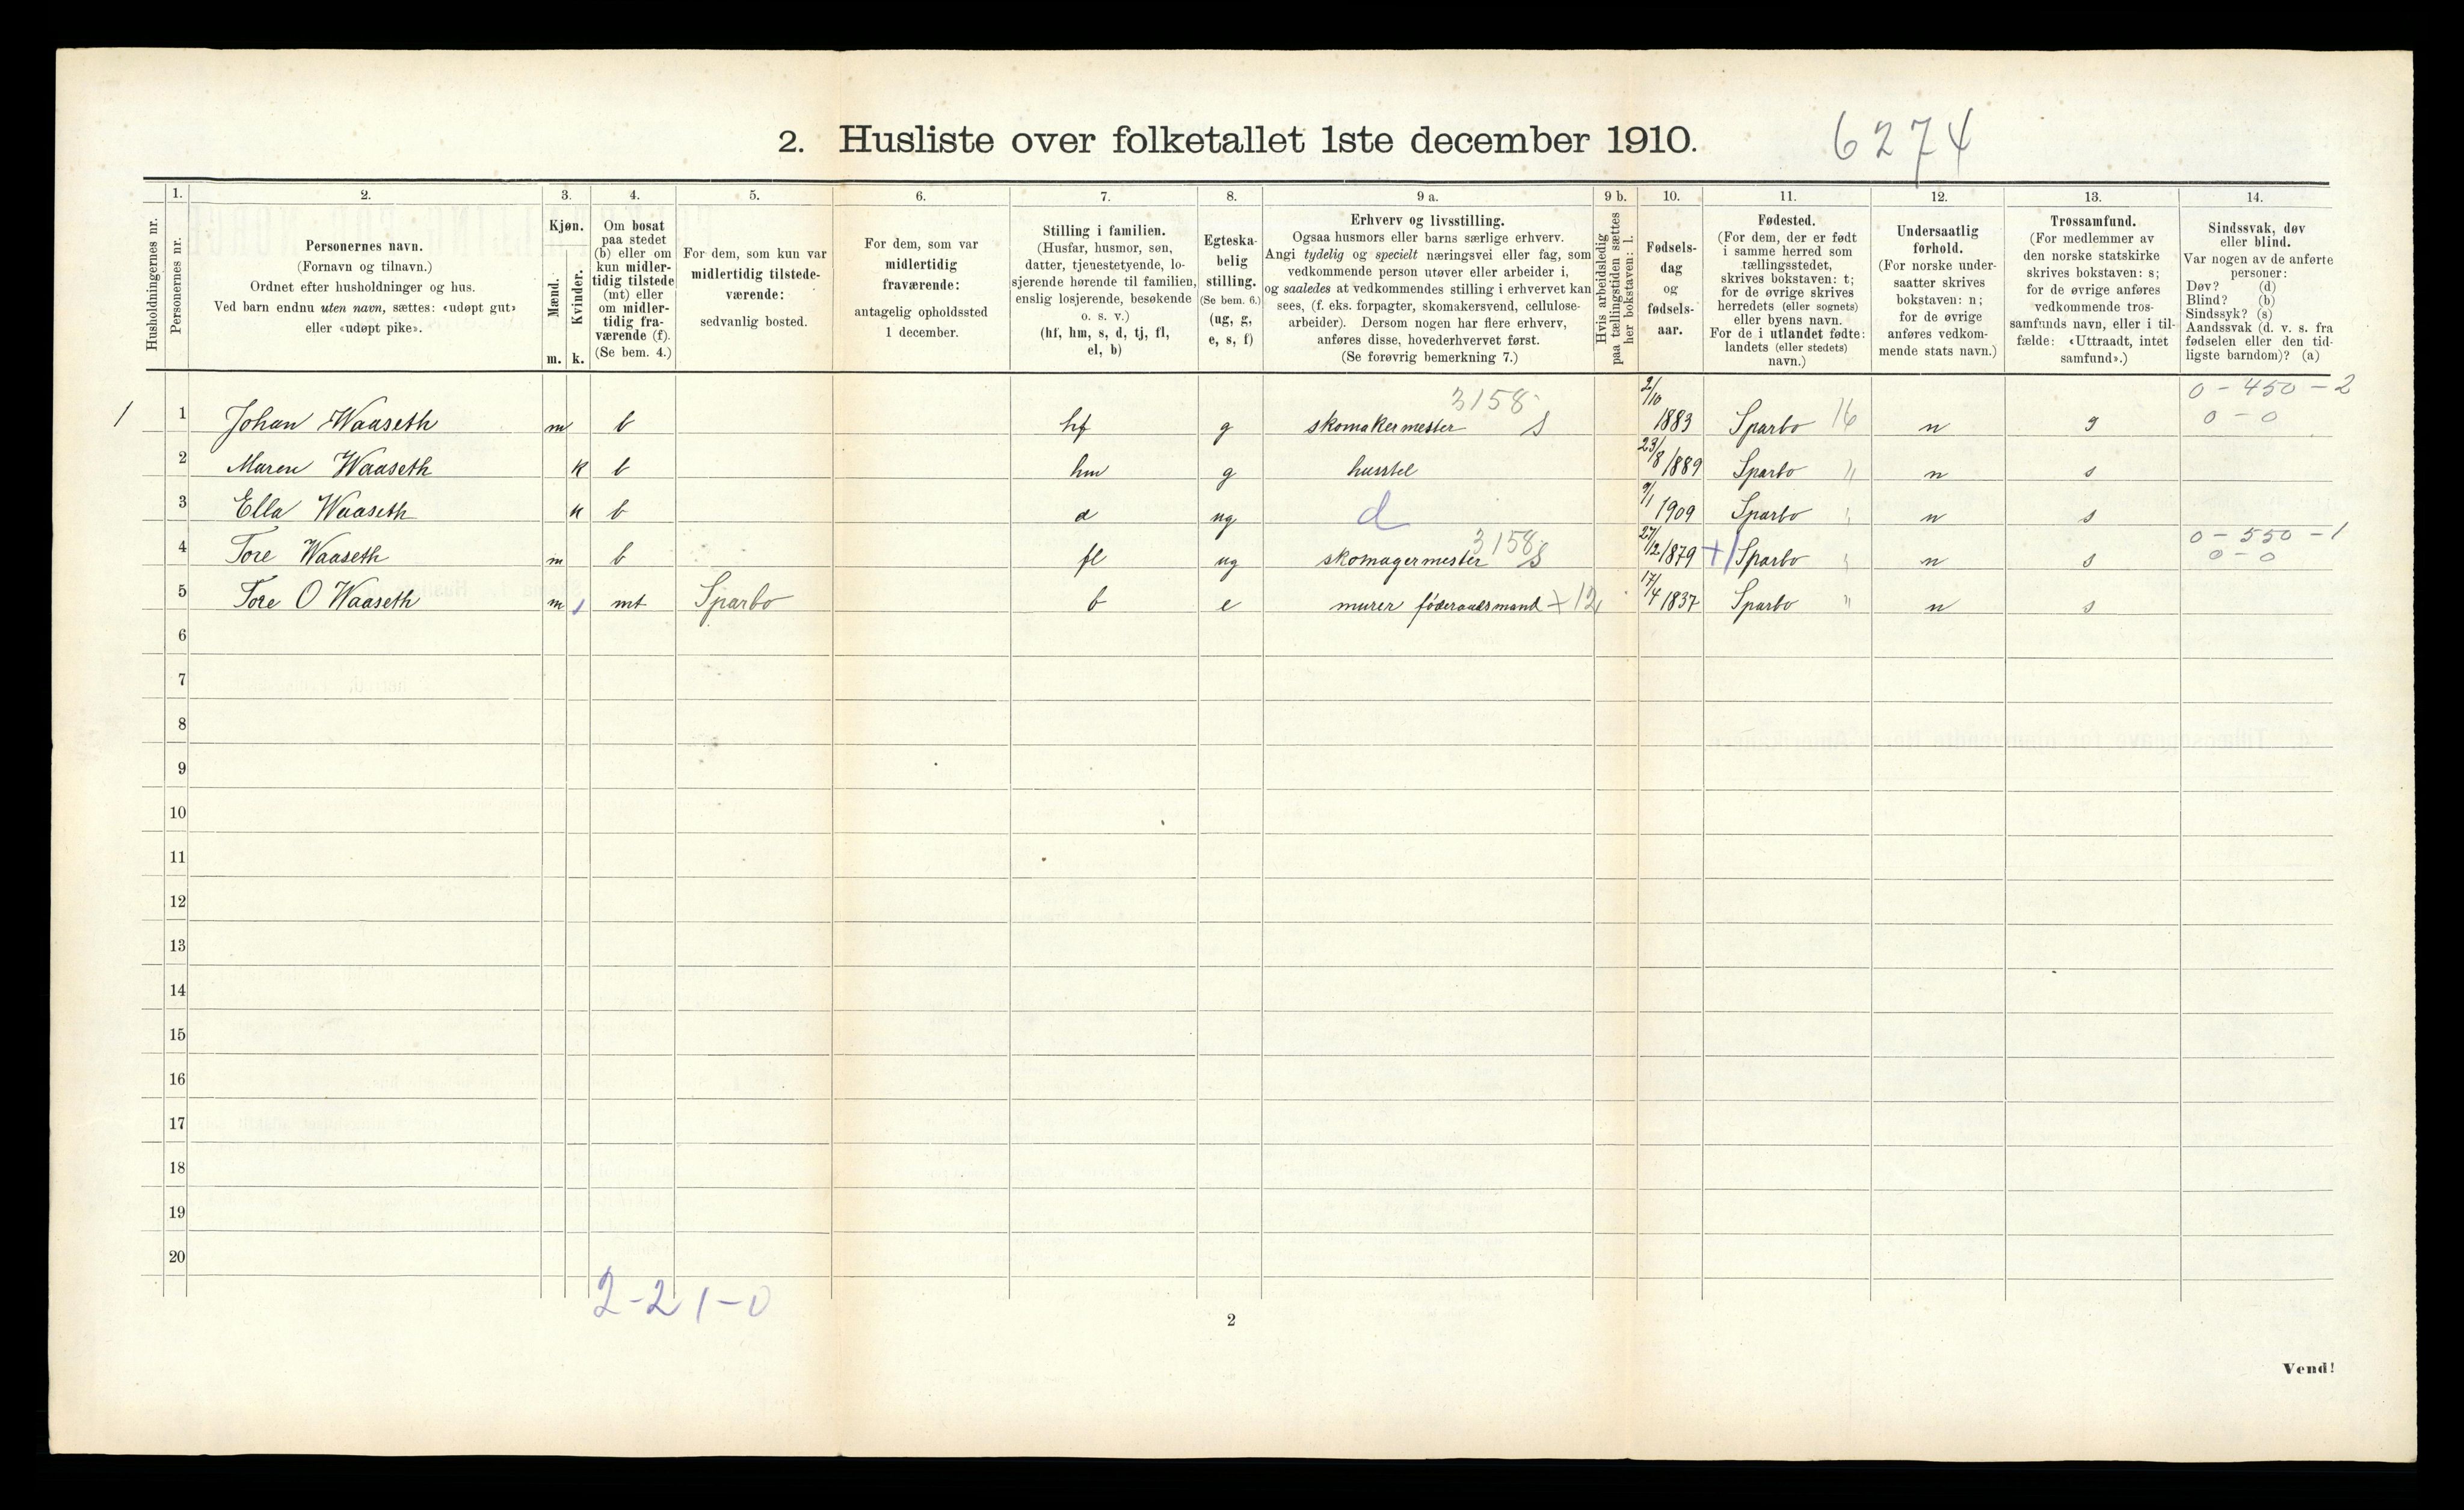 2. Husliste over folketallet 1ste december 1910.
6274
1. 2. 3. 4. 5. 6. 7. 8. 9 a. 9 b. 10. 11. 12. 13. 14.
Husholdningernes nr.
Personernes nr.
Personernes navn.
(Fornavn og tilnavn.)
Ordnet efter husholdninger og hus.
Ved barn endnu uten navn, sættes: «udøpt gut»
eller «udøpt pike».
Kjøn.
Mænd.
Kvinder.
m. k.
Om bosat
paa stedet
(b) eller om
kun midler-
tidig tilstede
(mt) eller
om midler-
tidig fra-
værende (f).
(Se bem. 4.)
For dem, som kun var
midlertidig tilstede-
værende:
sedvanlig bosted.
For dem, som var
midlertidig
fraværende:
antagelig opholdssted
1 december.
Stilling i familien.
(Husfar, husmor, søn,
datter, tjenestetyende, lo-
sjerende hørende til familien,
enslig losjerende, besøkende
o. s. v.)
(hf, hm, s, d, tj, fl,
el, b)
Egteska-
belig
stilling.
(Se bem. 6.)
(ug, g,
e, s, f)
Erhverv og livsstilling.
Ogsaa husmors eller barns særlige erhverv.
Angi tydelig og specielt næringsvei eller fag, som
vedkommende person utøver eller arbeider i,
og saaledes at vedkommendes stilling i erhvervet kan
sees, (f. eks. forpagter, skomakersvend, cellulose-
arbeider). Dersom nogen har flere erhverv,
anføres disse, hovederhvervet først.
(Se forøvrig bemerkning 7.)
Hvis arbeidsledig
paa tællingstiden sættes
her bokstaven: l.
Fødsels-
dag
og
fødsels-
aar.
Fødested.
(For dem, der er født
i samme herred som
tællingsstedet,
skrives bokstaven: t;
for de øvrige skrives
herredets (eller sognets)
eller byens navn.
For de i utlandet fødte:
landets (eller stedets)
navn.)
Undersaatlig
forhold.
(For norske under-
saatter skrives
bokstaven: n;
for de øvrige
anføres vedkom-
mende stats navn.)
Trossamfund.
(For medlemmer av
den norske statskirke
skrives bokstaven: s;
for de øvrige anføres
vedkommende tros-
samfunds navn, eller i til-
fælde: «Uttraadt, intet
samfund».)
Sindssvak, døv
eller blind.
Var nogen av de anførte
personer:
Døv? (d)
Blind? (b)
Sindssyk? (s)
Aandssvak (d. v. s. fra
fødselen eller den tid-
ligste barndom)? (a)
3158 2/10 0-450-2
1 1 Johan Waaseth m b hf g skomakermester S 1883 Sparbo 16 n s 0-0
2 Maren Waaseth k b hm g husstel 23/8 1889 Sparbo " n s
3 Ella Waaseth k b d ug d 9/1 1909 Sparbo " n s
3158 0-550-1
4 Tore Waaseth m b fl ug skomagermester S 27/12 1879 + Sparbo " n s 0-0
5 Tore O Waaseth m mt Sparbo b e murer føderaadsmand + 12, 17/4 1837 Sparbo " n s
6
7
8
9
10
11
12
13
14
15
16
17
18
19
20
2-2 1-0
2
Vend!